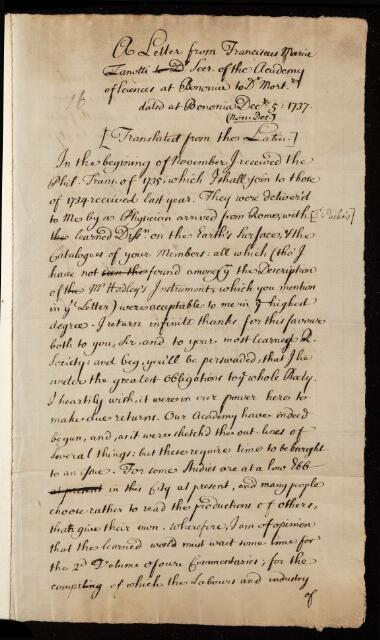 A Letter from Franciscus Maria
Zanotti to Dr Secr. of the Academy
of Sciences at Bononia to Dr Mort.
dated at Bononia Decr. 5: 1737.
(Nom: Dec)
[Translated from the Latin.]
In the beginning of November I received the
Phil: Trans: of 1735: which I shall join to those
of 1734 received last year. They were deliver'd
to Me by a Physician arrived from Rome, with
the learned Dissn. on the Earth's Surface, & the
Catalogues of your Members: all which (tho' I
have not seen the found among ym the Description
of the Mr Hadley's Instrument, which you mention
in yr Letter) were acceptable to me in ye highest
degree. I return infinite thanks for this favour
both to you, Sir, and to your most learned R.
Society: and beg, you'll be perswaded, that I lie
under the greatest Obligations to ye whole Body.
I heartily wish, it were in our power here to
make due returns. Our Academy have indeed
begun, and, as it were sketch'd the out-lines of
several things: but these require time to be brought
to an issue. For some Studies are at a low Ebb
at present in this City at present, and many people
choose rather to read the productions of others,
than give their own. Wherefore, I am of opinion
that the learned world must wait some time for
the 2d Volume of our Commentaries; for the
compiling of which the Labours and industry
of